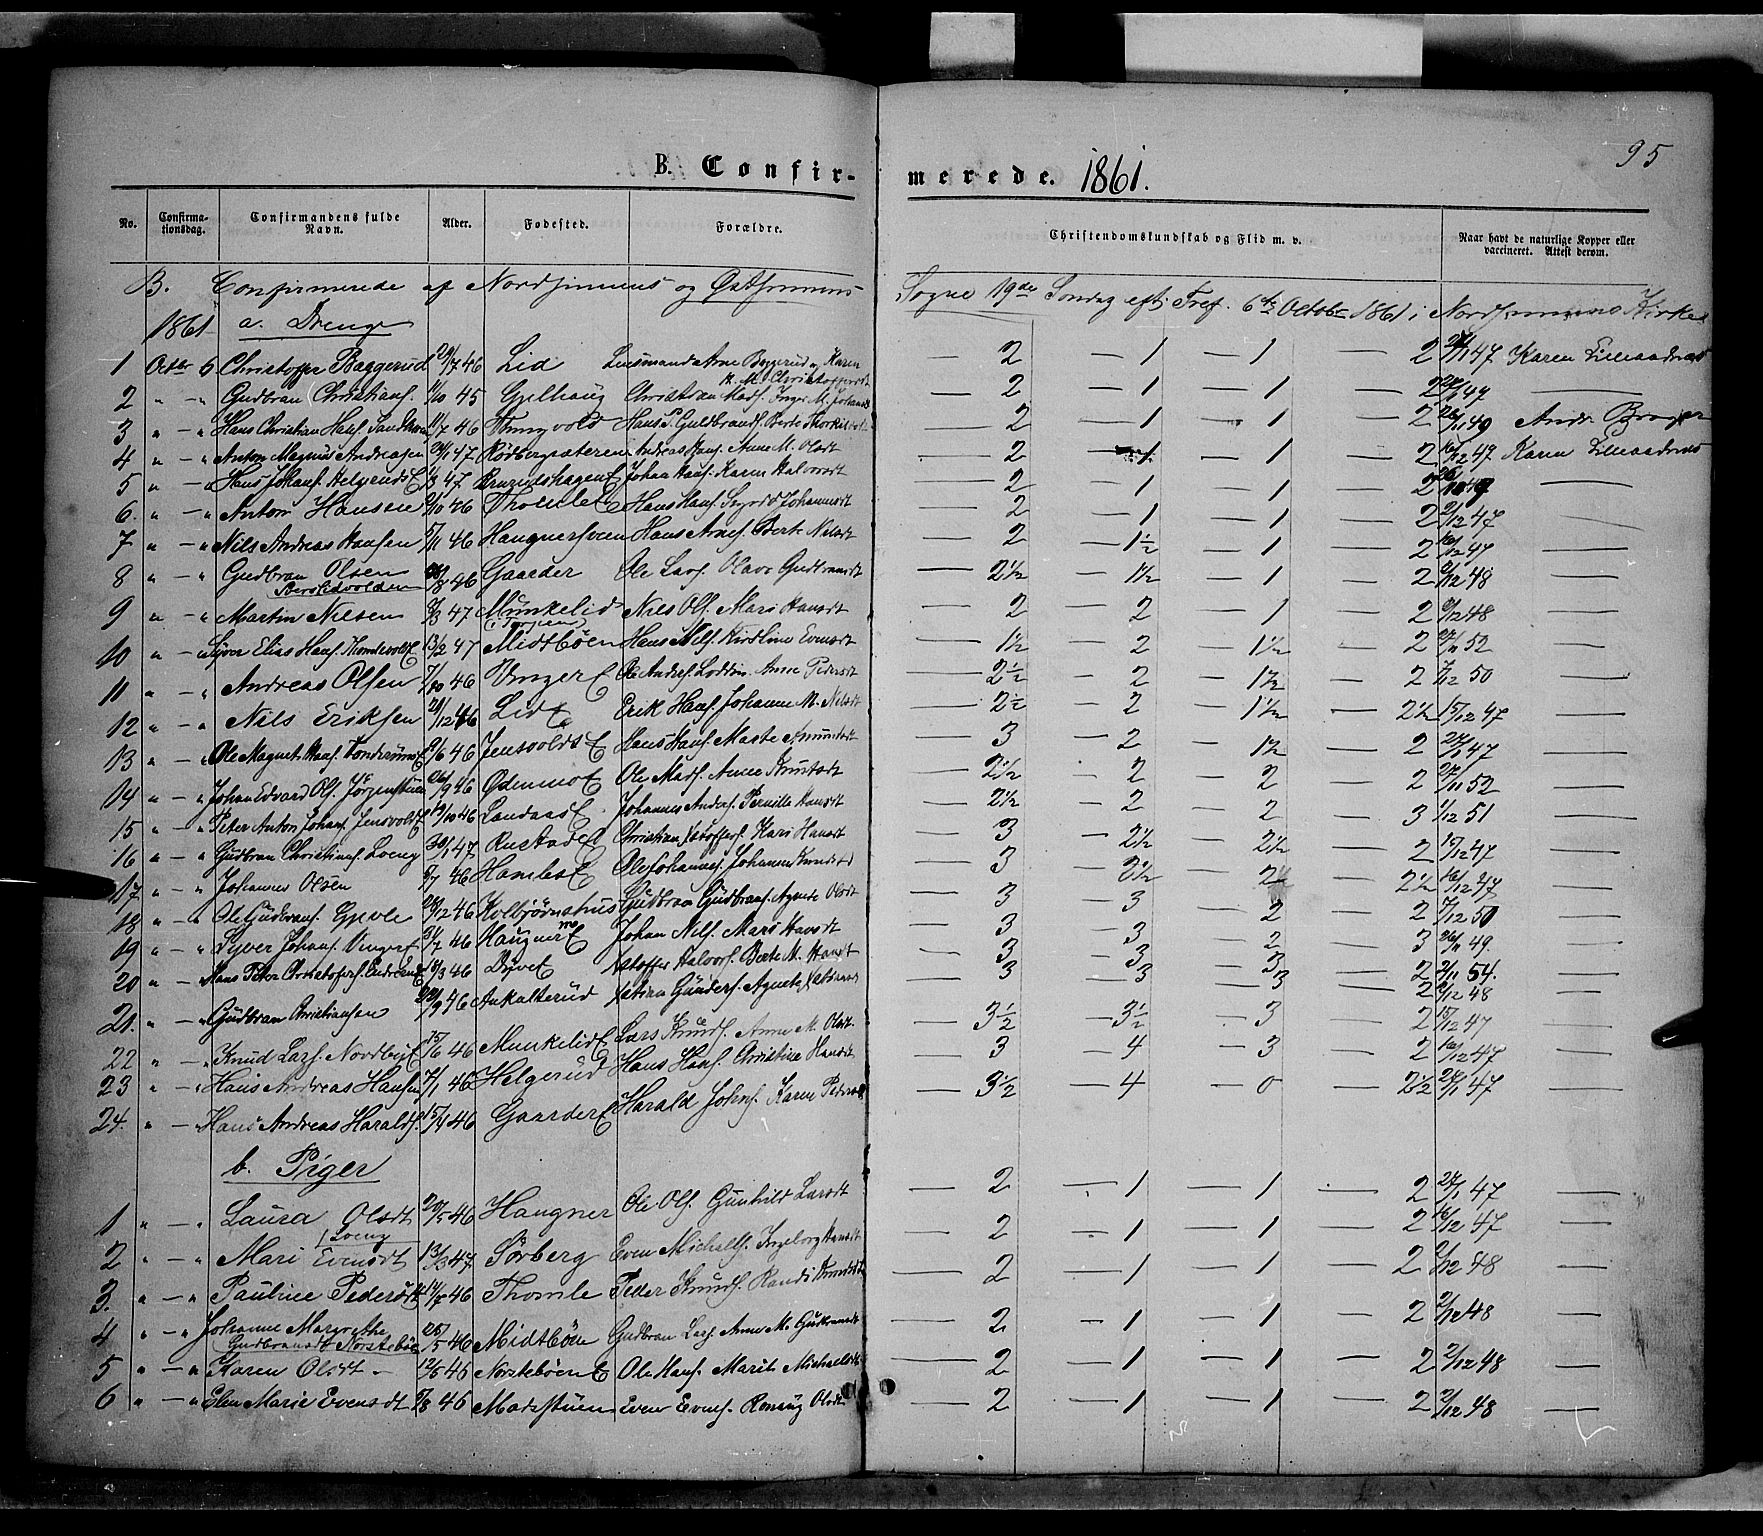 95
B. Confirmerede. 1861.
No. Confirmationsdag. Confirmandens fulde Navn. Alder. Fødested. Forældre. Christendomskundskab og Flid m. v. Naar havt de naturlige Kopper eller vaccineret. Attest derom.
B. Confirmerede af Nordsinnens og Østsinnens Sogne 19de Søndag eft. Tref. 6te Octobr 1861 i Nordsinnens Kirke
1861 a. Drenge
1 Octbr 6 Christoffer Baggerud 29/7 46 Lid Lensmand Arne Baggerud og Karen M. Christoffersdt — 2 — 1 — 1 — 2 /1 47 Karen Lilleaadnæs
2 " — " Gudbran Christians. 1/10 45 Gjelhaug Christian Mads. Inger M. Johansdt — 2 — 1 — 1 — 2 /1 47 —
3 " — " Hans Christian Hans. 11/7 46 Tømmervold Hans P. Guldbrands. Berte Thorkilsdt — 2 — 1 — 1 — 2 26/11 49 Andr. Brager
4 " — " Anton Magnus Andreasen 24/1 47 Rødbergsæteren Andreas Hans. Anne M. Olsdt — 2 — 1 — 1 — 2 16/12 47 Karen Lilleaadnæs
5 " — " Hans Johans. HelgerudsE 1/3 47 Johan Hans. Karen Halvorsdt — 2 — 1 — 1 — 2 —
6 " — " Anton Hansen 9/10 46 ThomleE Hans Hans. Sigrid Johannsdt — 2 — 1 — 1 — 2 2/12 47
7 " — " Nils Andreas Hansen 5/11 46 Haugnersveen Hans Arnes. Berte Nilsdt — 2 — 1½ — 1 — 2 16/12 47 —
8 " — " Gudbran Olsen 26/8 46 Gaarder Ole Lars. Olava Gudbransdt — 2½ — 1½ — 1 — 2 2/12 48 —
9 " — " Martin Nielsen 9/3 47 Munkelid Niels Ols. Mari Hansdt — 2 — 2 — 1 — 2 2/12 48 —
10 " — " Syver Elias Hans. 13/2 47 Midtbøen Hans Nils. Kirstine Evensdt — 1½ — 2 — 1½ — 2 27/11 52 —
11 " — " Andreas Olsen 7/10 46 UngerE Ole Anders. Anne Pedersdt — 2½ — 2 — 1½ — 2 7/12 50 —
12 " — " Nils Eriksen 29/12 46 LidE Erik Hans. Johanne M. Nilsdt — 2½ — 2 — 1½ — 2½ 15/12 47 —
13 " — " Ole Magnus Hans. 9/6 46 JensvoldsE Hans Hans. Marte Amundsdt — 3 — 2 — 1½ — 2 27/1 47 —
14 " — " Johan Edvard Ols. Jørgenstuen 26/9 46 ØdemoE Ole Mads. Anne Knutsdt — 2½ — 2 — 2 — 2 27/11 52 —
15 " — " Peter Anton Johan. JensvoldE 19/10 46 LandaasE Johannes Anders. Pernille Hansdt — 2½ — 2 — 2 — 3 1/12 51 —
16 " — " Gudbran Christians. Loeng 30/1 47 RustadE Christian Xstoffers. Kari Hansdt — 3 — 2½ — 2½ — 2 15/12 47 —
17 " — " Johannes Olsen 9/7 46 HamleE Ole Johannes. Johanne Knudsdt — 3 — 2½ — 2 — 2½ 16/12 47 —
18 " — " Ole Gudbrans. Gjøvle 28/12 46 Kolbjørnshus Gudbran Gudbrans. Agnete Olsdt — 3 — 3 — 2 — 2 7/12 50 —
19 " — " Syver Johans. UngerE 31/7 46 HaugnerE Johan Nils. Mari Hansdt — 3 — 3 — 2 — 3 26/11 49 —
20 " — " Hans Peter Christoffers. 18/3 46 Xstoffer Halvors. Berte M. Hansdt — 3 — 3 — 3 — 2 2/11 54. —
21. " — " Gudbran Christiansen 22/9 46 Ankalterud Xstian Gunders. Agnete Xstiansdt — 3 — 3 — 3 — 2 2/12 48 —
22 " — " Knud Lars. NordbyE 15/6 46 MunkelidE Lars Knuds. Anne M. Olsdt. — 3½ — 3½ — 3 — 2 15/12 47 —
23 " — " Hans Andreas Hansen 7/1 46 Helgerud Hans Hans. Christine Hansdt — 3 — 4 — 3 — 2 16/12 47 —
24. " — " Hans Andreas Haralds. 15/4 46 GaarderE Harald Johns. Karen Pedersdt — 3½ — 4 — 0 — 2½ 27/1 47 —
b. Piger
1 " — " Laura Olsdt 20/5 46 Haugner Ole Ols. Gunhild Larsdt — 2 — 1 — 1 — 2 27/1 47 —
2 " — " Mari Evensdt (Loeng 13/3 47 Sørberg Even Michels. Ingeborg Hansdt — 2 — 1 — 1 — 2 16/12 47 —
3. " — " Pauline Pedersdt 14/7 46 Thomle Peder Knuds. Randi Knudsdt — 2 — 1 — 1 — 2 2/12 48 —
4 " — " Johanne Margrethe Gudbransdt Norstebøe 25/5 46 Midtbøen Gudbran Lars. Anne M. Gudbransdt — 2 — 1 — 1 — 2 2/12 48 —
5 " — " Karen Olsdt — 12/6 46 NorstebøenE Ole Hans. Marit Michelsdt — 2 — 1 — 1 — 2 2/12 48 —
6 " — " Elen Marie Evensdt 9/8 46 Madsstuen Even Evens. Rønnug Olsdt — 2 — 1 — 1 — 2 2/12 48 —